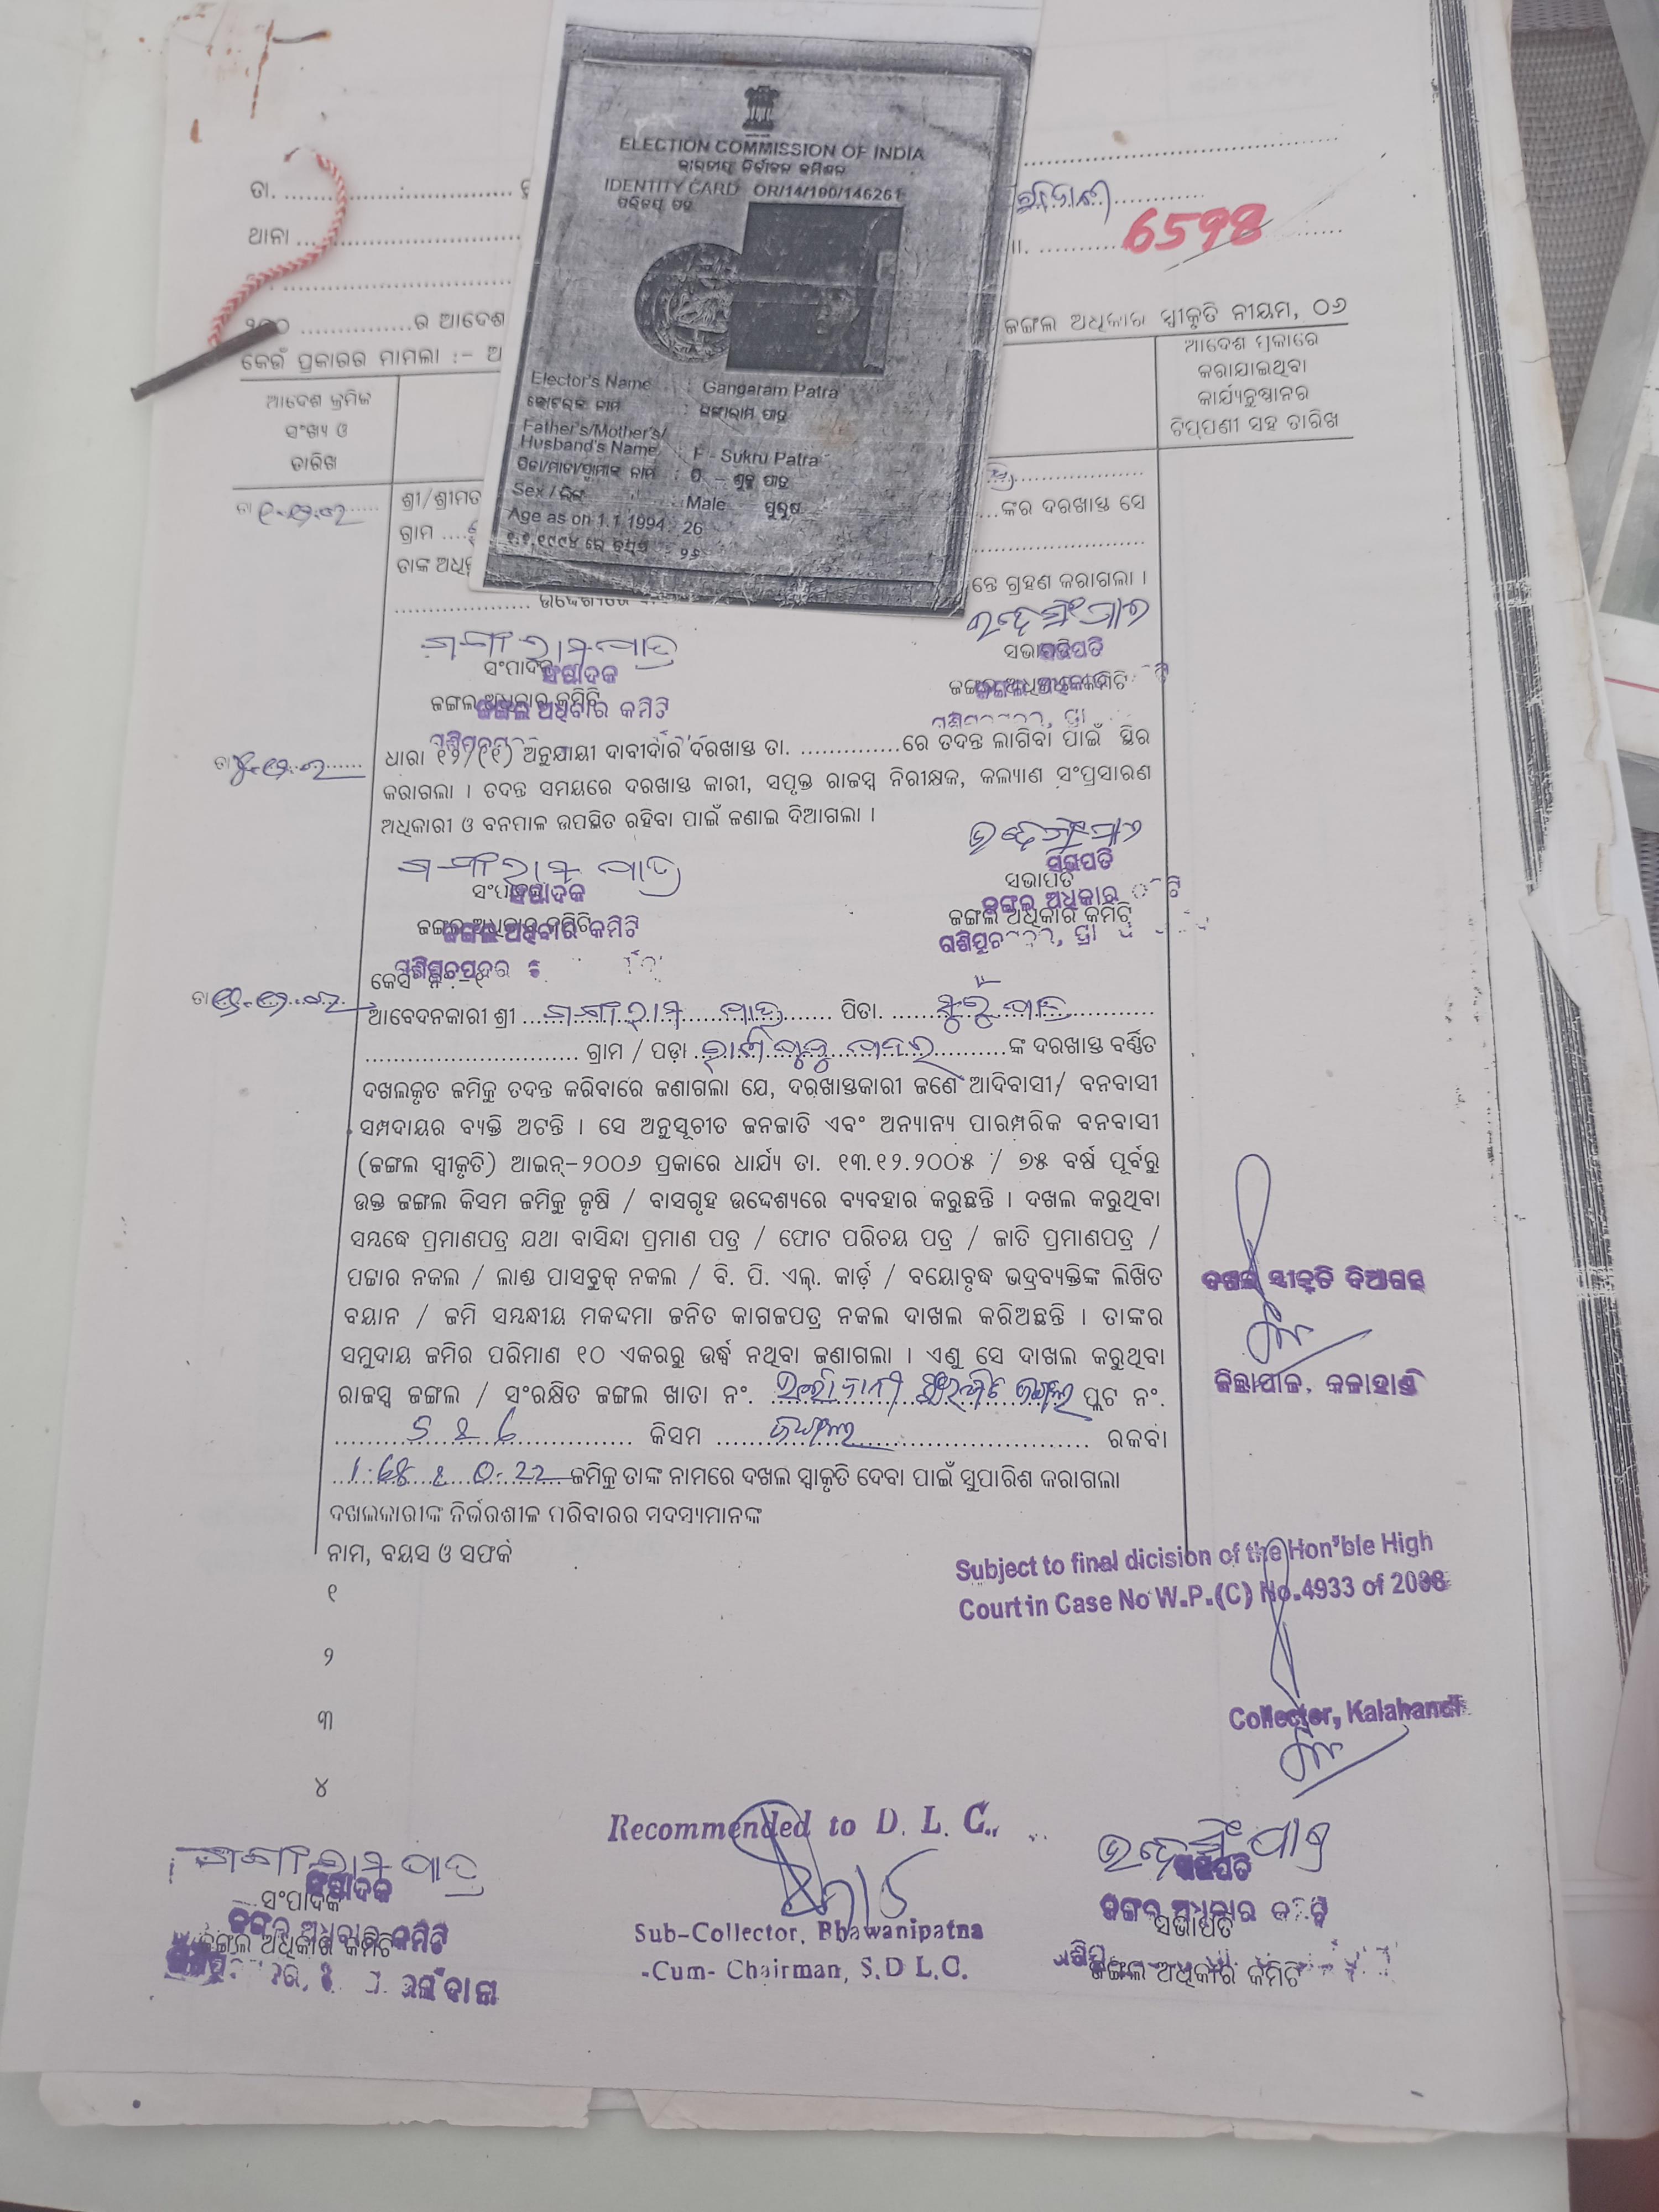 ELECTION COMMISSION OF INDIA
ଭାରତୀୟ ନିର୍ବାଚନ କମିଶନ
IDENTITY CARD OR/14/100/146261
ପରିଚୟ ପତ୍ର
Elector's Name : Gangaram Patra
ଭୋଟରଙ୍କ ନାମ : ଗଙ୍ଗାରାମ ପାତ୍ର
Father's/Mother's/
Husband's Name : F - Sukru Patra
ପିତା/ମାତା/ସ୍ୱାମୀଙ୍କ ନାମ : ପି - ଶୁକ୍ରୁ ପାତ୍ର
Sex / ଲିଙ୍ଗ : Male ପୁରୁଷ
Age as on 1.1.1994 : 26
୧.୧.୧୯୯୪ ରେ ବୟସ : ୨୬
ତା.
ଥାନା
6598
୨୦୦ ...............ର ଆଦେଶ
ଜଙ୍ଗଲ ଅଧିକାର ସ୍ୱୀକୃତି ନୀୟମ, ୦୬
କେଉଁ ପ୍ରକାରର ମାମଲା :- ଅ
ଆଦେଶ କ୍ରମିକ
ସଂଖ୍ୟ ଓ
ତାରିଖ
ଆଦେଶ ପ୍ରକାରେ
କରାଯାଇଥିବା
କାର୍ଯ୍ୟନୁଷ୍ଠାନର
ଟିପ୍‌ପଣୀ ସହ ତାରିଖ
ତା
ଶ୍ରୀ/ଶ୍ରୀମତ
...ଙ୍କର ଦରଖାସ୍ତ ସେ
ଗ୍ରାମ
ତାଙ୍କ ଅଧି
ନ୍ତେ ଗ୍ରହଣ କରାଗଲା ।
ଗଙ୍ଗାରାମ ପାତ୍ର
ସଂପାଦକ
ସଭାପତି
ଜଙ୍ଗଲ ଅଧିକାର କମିଟି
ଜଙ୍ଗଲ ଅଧିକାର କମିଟି
ତା
ଧାରା ୧୨/(୧) ଅନୁଯାୟୀ ଦାବୀଦାର ଦରଖାସ୍ତ ତା. ..............ରେ ତଦନ୍ତ ଲାଗିବା ପାଇଁ ସ୍ଥିର
କରାଗଲା । ତଦନ୍ତ ସମୟରେ ଦରଖାସ୍ତ କାରୀ, ସପୃକ୍ତ ରାଜସ୍ୱ ନିରୀକ୍ଷକ, କଲ୍ୟାଣ ସଂପ୍ରସାରଣ
ଅଧିକାରୀ ଓ ବନପାଳ ଉପସ୍ଥିତ ରହିବା ପାଇଁ ଜଣାଇ ଦିଆଗଲା ।
ଗଙ୍ଗାରାମ ପାତ୍ର
ସଂପାଦକ
ସଭାପତି
ସଭାପତି
ଜଙ୍ଗଲ ଅଧିକାର
ଜଙ୍ଗଲ ଅଧିକାର କମିଟି
ଜଙ୍ଗଲ ଅଧିକାର କମିଟି
ତା
ଆବେଦନକାରୀ ଶ୍ରୀ ଗଙ୍ଗାରାମ ପାତ୍ର ପିତା. ସୁକ୍ରୁ ପାତ୍ର
ଗ୍ରାମ / ପଡ଼ା ଙ୍କ ଦରଖାସ୍ତ ବର୍ଣ୍ଣିତ
ଦଖଲକୃତ ଜମିକୁ ତଦନ୍ତ କରିବାରେ ଜଣାଗଲା ଯେ, ଦରଖାସ୍ତକାରୀ ଜଣେ ଆଦିବାସୀ/ ବନବାସୀ
ସମ୍ପଦାୟର ବ୍ୟକ୍ତି ଅଟନ୍ତି । ସେ ଅନୁସୂଚୀତ ଜନଜାତି ଏବଂ ଅନ୍ୟାନ୍ୟ ପାରମ୍ପରିକ ବନବାସୀ
(ଜଙ୍ଗଲ ସ୍ୱୀକୃତି) ଆଇନ୍-୨୦୦୬ ପ୍ରକାରେ ଧାର୍ଯ୍ୟ ତା. ୧୩.୧୨.୨୦୦୫ / ୭୫ ବର୍ଷ ପୂର୍ବରୁ
ଉକ୍ତ ଜଙ୍ଗଲ କିସମ ଜମିକୁ କୃଷି / ବାସଗୃହ ଉଦ୍ଦେଶ୍ୟରେ ବ୍ୟବହାର କରୁଛନ୍ତି । ଦଖଲ କରୁଥିବା
ସମ୍ବଦ୍ଧେ ପ୍ରମାଣପତ୍ର ଯଥା ବାସିନ୍ଦା ପ୍ରମାଣ ପତ୍ର / ଫୋଟ ପରିଚୟ ପତ୍ର / ଜାତି ପ୍ରମାଣପତ୍ର /
ପଟ୍ଟାର ନକଲ / ଲାଣ୍ଡ ପାସବୁକ୍ ନକଲ / ବି. ପି. ଏଲ୍. କାର୍ଡ଼ / ବୟୋବୃଦ୍ଧ ଭଦ୍ରବ୍ୟକ୍ତିଙ୍କ ଲିଖିତ
ବୟାନ / ଜମି ସମ୍ବନ୍ଧୀୟ ମକଦ୍ଦମା ଜନିତ କାଗଜପତ୍ର ନକଲ ଦାଖଲ କରିଅଛନ୍ତି । ତାଙ୍କର
ସମୁଦାୟ ଜମିର ପରିମାଣ ୧୦ ଏକରରୁ ଉର୍ଦ୍ଧ୍ୱ ନଥିବା ଜଣାଗଲା । ଏଣୁ ସେ ଦାଖଲ କରୁଥିବା
ରାଜସ୍ୱ ଜଙ୍ଗଲ / ସଂରକ୍ଷିତ ଜଙ୍ଗଲ ଖାତା ନଂ. ପ୍ଲଟ ନଂ.
5 & 6 କିସମ ଜଙ୍ଗଲ ରକବା
1.68 & 0.22 ଜମିକୁ ତାଙ୍କ ନାମରେ ଦଖଲ ସ୍ୱୀକୃତି ଦେବା ପାଇଁ ସୁପାରିଶ କରାଗଲା
ଦଖଲକାରୀଙ୍କ ନିର୍ଭରଶୀଳ ପରିବାରର ସଦସ୍ୟମାନଙ୍କ
ନାମ, ବୟସ ଓ ସଫର୍କ
୧
୨
୩
୪
ଦଖଲ ସ୍ୱୀକୃତି ଦିଆଗଲା
ଜିଲ୍ଲାପାଳ, କଳାହାଣ୍ଡି
Subject to final dicision of the Hon'ble High
Court in Case No W.P.(C) No.4933 of 2008
Collector, Kalahandi
Recommended to D. L. C.
Sub-Collector, Bhawanipatna
-Cum- Chairman, S.D L.C.
ଗଙ୍ଗାରାମ ପାତ୍ର
ସଂପାଦକ
ଜଙ୍ଗଲ ଅଧିକାର କମିଟି
ସଭାପତି
ଜଙ୍ଗଲ ଅଧିକାର କମିଟି